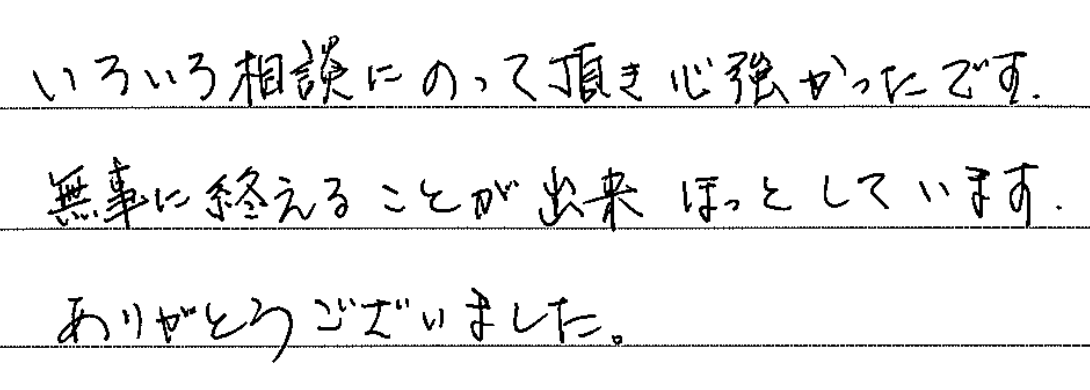 いろいろ相談にのって頂き心強かったです.
無事に終えることが出来ほっとしています.
ありがとうございました。